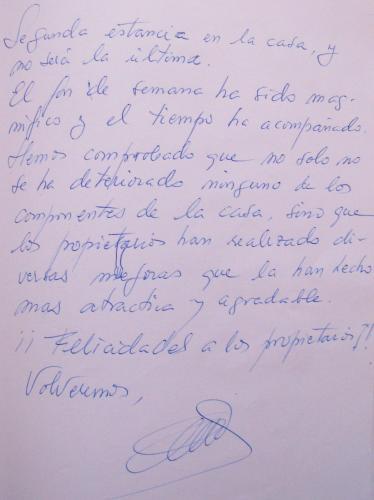 Segunda estancia en la casa, y
no será la última.
El fin de semana ha sido mag-
nífico y el tiempo ha acompañado.
Hemos comprobado que no solo no
se ha deteriorado ninguno de los
componentes de la casa, sino que
los propietarios han realizado di-
versas mejoras que la han hecho
mas atractiva y agradable.
¡¡ Felicidades a los propietarios!!
Volveremos,